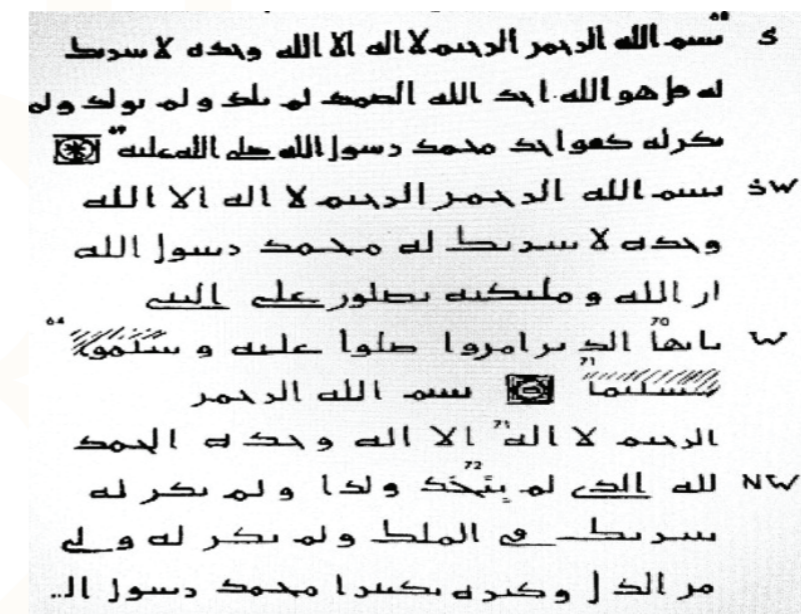 S ⁶⁸بسم الله الرحمن الرحيم لا اله الا الله وحده لا شريك
له قل هو الله احد الله الصمد لم يلد و لم يولد ولم
يكن له كفوا احد محمد رسول الله صلى الله عليه⁶⁹
SW بسم الله الرحمن الرحيم لا اله الا الله
وحده لا شريك له محمد رسول الله
ان الله و مليكته يصلون على النبي
W يايها⁷⁰ الذين امنوا صلوا عليه و سلموا⁶⁴
تسليما⁷¹ بسم الله الرحمن
الرحيم لا اله⁷¹ الا الله وحده الحمد
NW لله الذي لم يتخذ⁷² ولدا و لم يكن له
شريك في الملك و لم يكن له ولي
من الذل و كبره تكبيرا محمد رسول ا لـ..